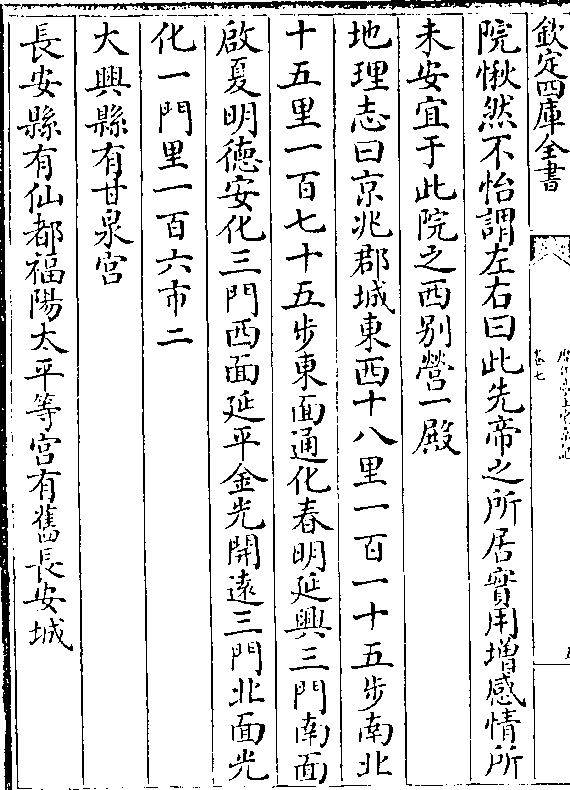 欽定四庫全書
卷七
院愀然不怡謂左右曰此先帝之所居實用增感情所
未安宜于此院之西别營一殿
地理志曰京兆郡城東西十八里一百一十五步南北
十五里一百七十五步東面通化春明延興三門南面
啟夏明德安化三門西面延平金光開遠三門北面光
化一門里一百六市二
大興縣有甘泉宮
長安縣有仙都福陽太平等宮有舊長安城